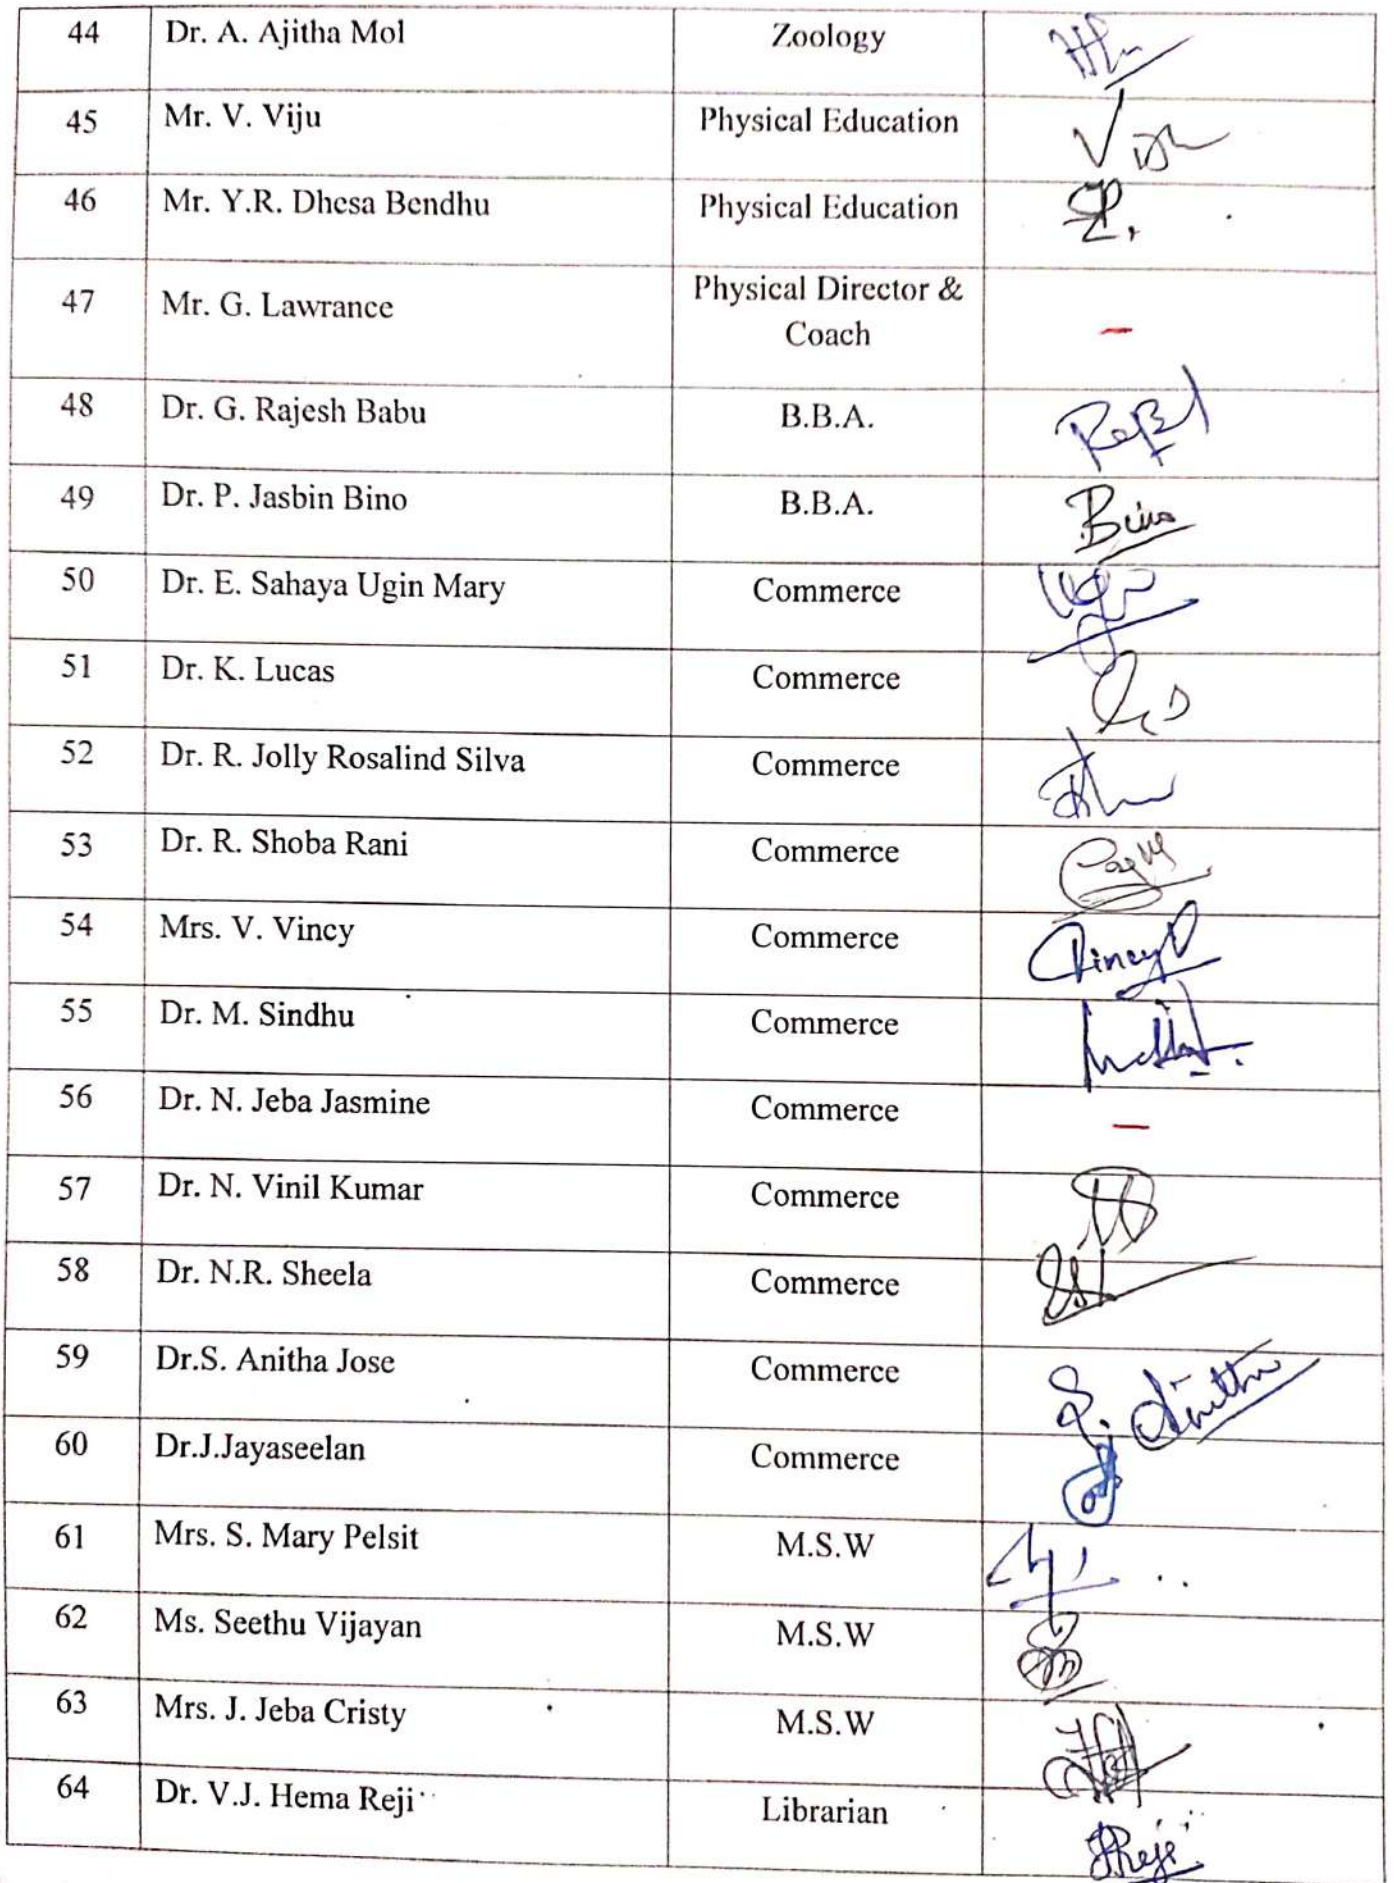 44 Dr. A. Ajitha Mol Zoology
45 Mr. V. Viju Physical Education
46 Mr. Y.R. Dhesa Bendhu Physical Education
47 Mr. G. Lawrance Physical Director &
Coach –
48 Dr. G. Rajesh Babu B.B.A.
49 Dr. P. Jasbin Bino B.B.A. Bino
50 Dr. E. Sahaya Ugin Mary Commerce
51 Dr. K. Lucas Commerce
52 Dr. R. Jolly Rosalind Silva Commerce
53 Dr. R. Shoba Rani Commerce
54 Mrs. V. Vincy Commerce
55 Dr. M. Sindhu Commerce
56 Dr. N. Jeba Jasmine Commerce –
57 Dr. N. Vinil Kumar Commerce
58 Dr. N.R. Sheela Commerce
59 Dr.S. Anitha Jose Commerce S. Anitha
60 Dr.J.Jayaseelan Commerce
61 Mrs. S. Mary Pelsit M.S.W
62 Ms. Seethu Vijayan M.S.W
63 Mrs. J. Jeba Cristy M.S.W
64 Dr. V.J. Hema Reji Librarian